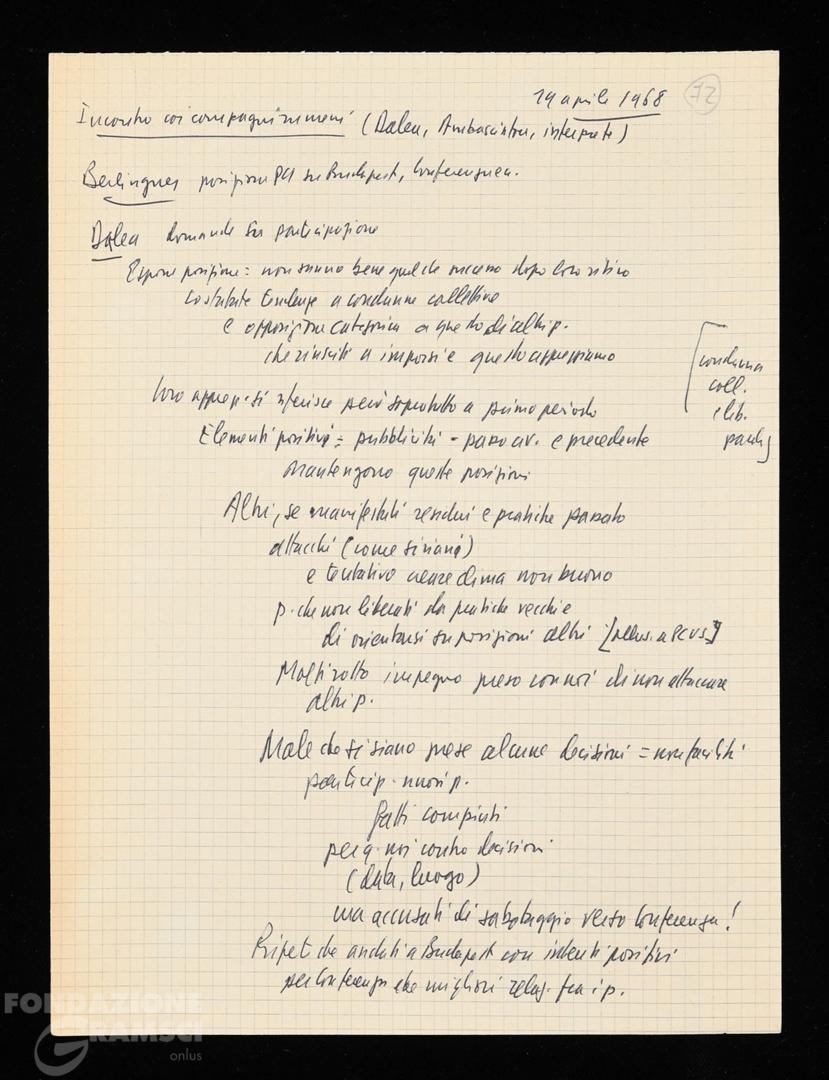 19 aprile 1968
72
Incontro coi compagni rumeni (Dalea, Ambasciatore, interprete)
Berlinguer posizioni PCI su Budapest, Conferenza.
Dalea domande su partecipazione
Espone posizione = non sanno bene quel che successo dopo loro ritiro
constatate tendenze a condanne collettive
e opposizione categorica a questo di altri p.
che riusciti a imporsi e questo apprezziamo
loro apprezz. si riferisce però soprattutto a primo periodo
condanna
coll.
e lib.
Elementi positivi = pubblicità - passo av. e precedente
Mantengono queste posizioni
Altri, se manifestati residui e pratiche passato
attacchi (come siriani)
e tentativo creare clima non buono
p. che non liberati da pratiche vecchie
di orientarsi su posizioni altri [allus. a PCUS]
Molti rotto impegno preso con noi di non attaccare
altri p.
Male che si siano prese alcune decisioni = non faciliti
particip. nuovi p.
fatti compiuti
per q. noi contro decisioni
(data, luogo)
ma accusati di sabotaggio verso Conferenza!
Ripet. che andati a Budapest con intenti positivi
per Conferenza che migliori relaz. fra i p.
FONDAZIONE
GRAMSCI
onlus